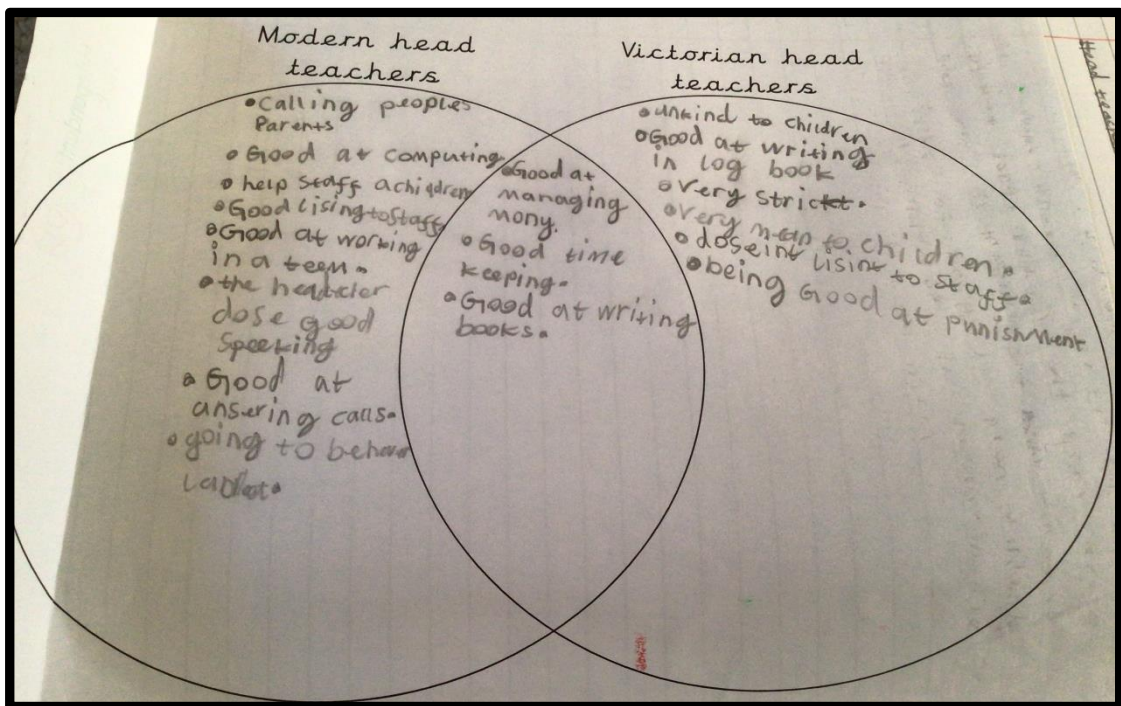 Modern head
teachers
• Calling peoples
Parents
• Good at computing
• help staff a children
• Good lising to staff
• Good at working
in a teem.
• the headtcler
dose good
Speeking
• Good at
ansering calls.
• going to behever
Good at
managing
mony.
• Good time
keeping.
• Good at writing
books.
Victorian head
teachers
• unkind to children
• Good at writing
in log book
• Very strickt.
• Very mean to children.
• doseint lisint to staff.
• being Good at punishment
Head teache